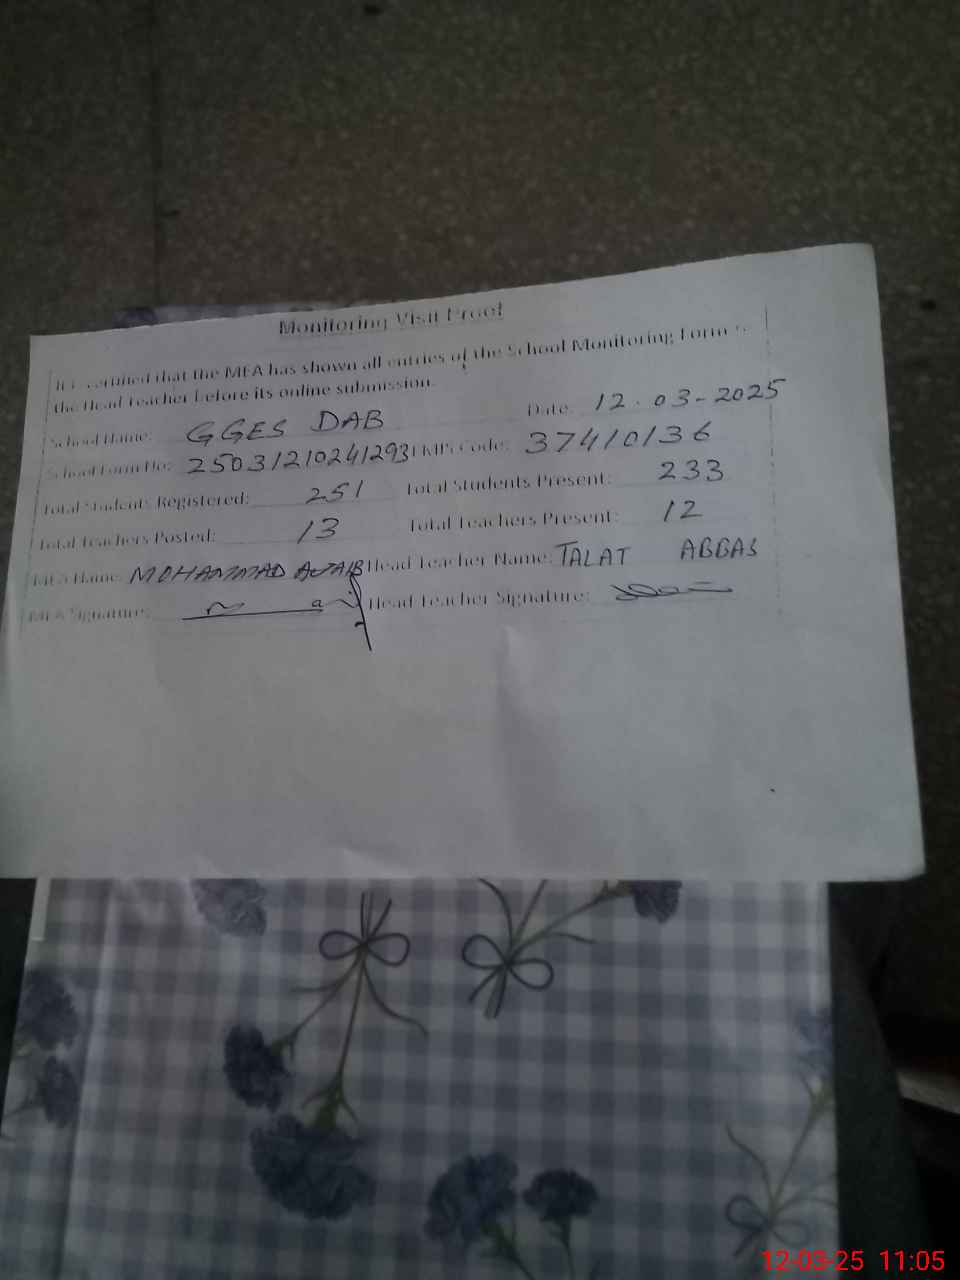 Monitoring Visit Proof
It is certified that the MEA has shown all entries of the School Monitoring Form to
the Head Teacher before its online submission.
School Name: GGES DAB Date: 12.03-2025
School Form No: 25031210241293 EMIS Code: 37410136
Total Students Registered: 251 Total Students Present: 233
Total Teachers Posted: 13 Total Teachers Present: 12
MEA Name: MOHAMMAD AJTAIB Head Teacher Name: TALAT ABBAS
MEA Signature: Head Teacher Signature:
12-03-25 11:05